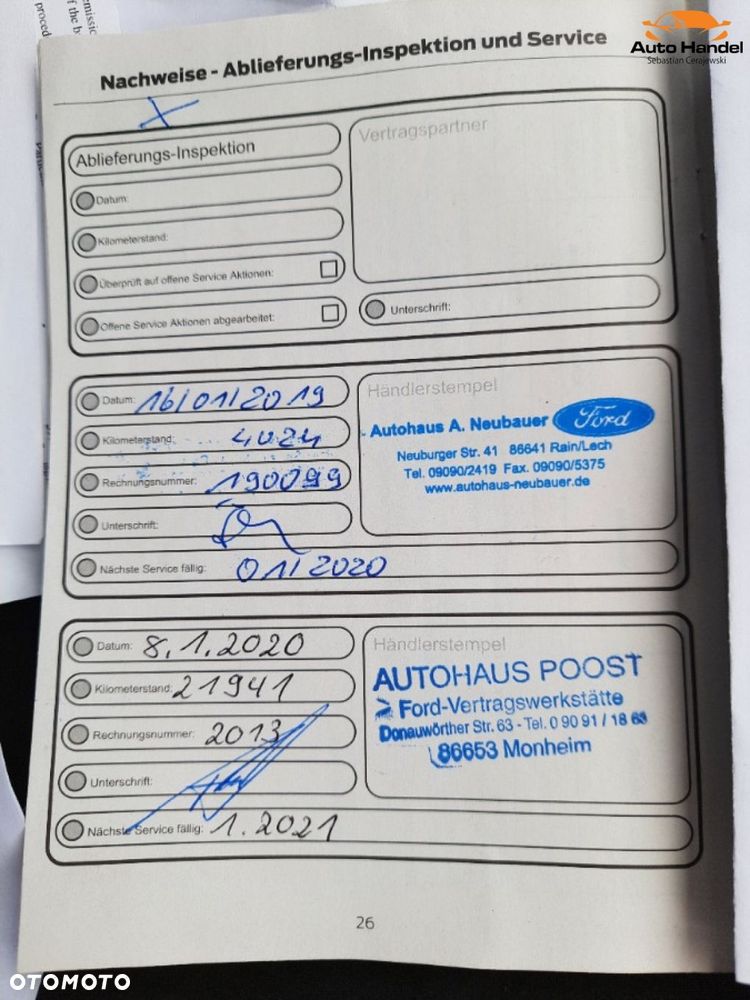 emissic
f the b
proced
Auto Handel
Sebastian Cerajewski
Nachweise - Ablieferungs-Inspektion und Service
Ablieferungs-Inspektion
Datum:
Kilometerstand:
Überprüft auf offene Service Aktionen:
Offene Service Aktionen abgearbeitet:
Vertragspartner
Unterschrift:
Datum: 16/01/2019
Kilometerstand: 4024
Rechnungsnummer: 190099
Unterschrift:
Nächste Service fällig: 01/2020
Händlerstempel
Autohaus A. Neubauer Ford
Neuburger Str. 41 86641 Rain/Lech
Tel. 09090/2419 Fax. 09090/5375
www.autohaus-neubauer.de
Datum: 8.1.2020
Kilometerstand: 21941
Rechnungsnummer: 2013
Unterschrift:
Nächste Service fällig: 1.2021
Händlerstempel
AUTOHAUS POOST
Ford-Vertragswerkstätte
Donauwörther Str. 63 - Tel. 0 90 91 / 18 63
86653 Monheim
26
OTOMOTO